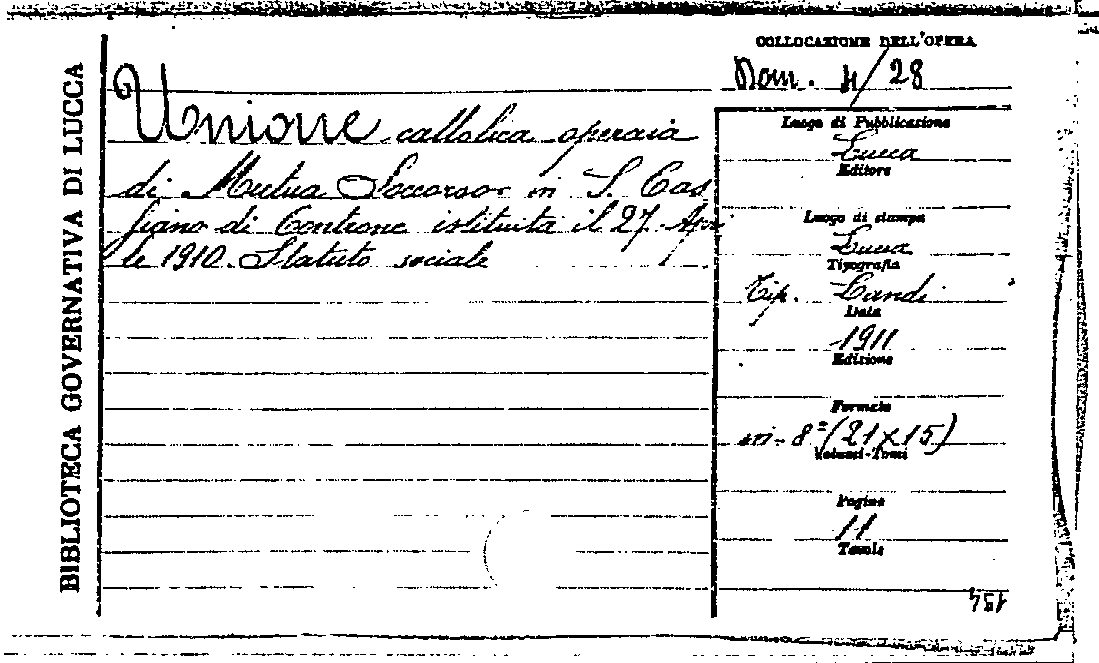 BIBLIOTECA GOVERNATIVA DI LUCCA
COLLOCAZIONE DELL'OPERA
Dom. 4/28
Unione cattolica operaia
di Mutuo Soccorso in S. Cas
siano di Controne istituita il 27 Apri
le 1910. Statuto sociale
Luogo di Pubblicazione
Lucca
Editore
Luogo di stampa
Lucca
Tipografia
Tip. Landi
Data
1911
Edizione
Formato
in-8º (21x15)
Volumi-Tomi
Pagine
11
Tavole